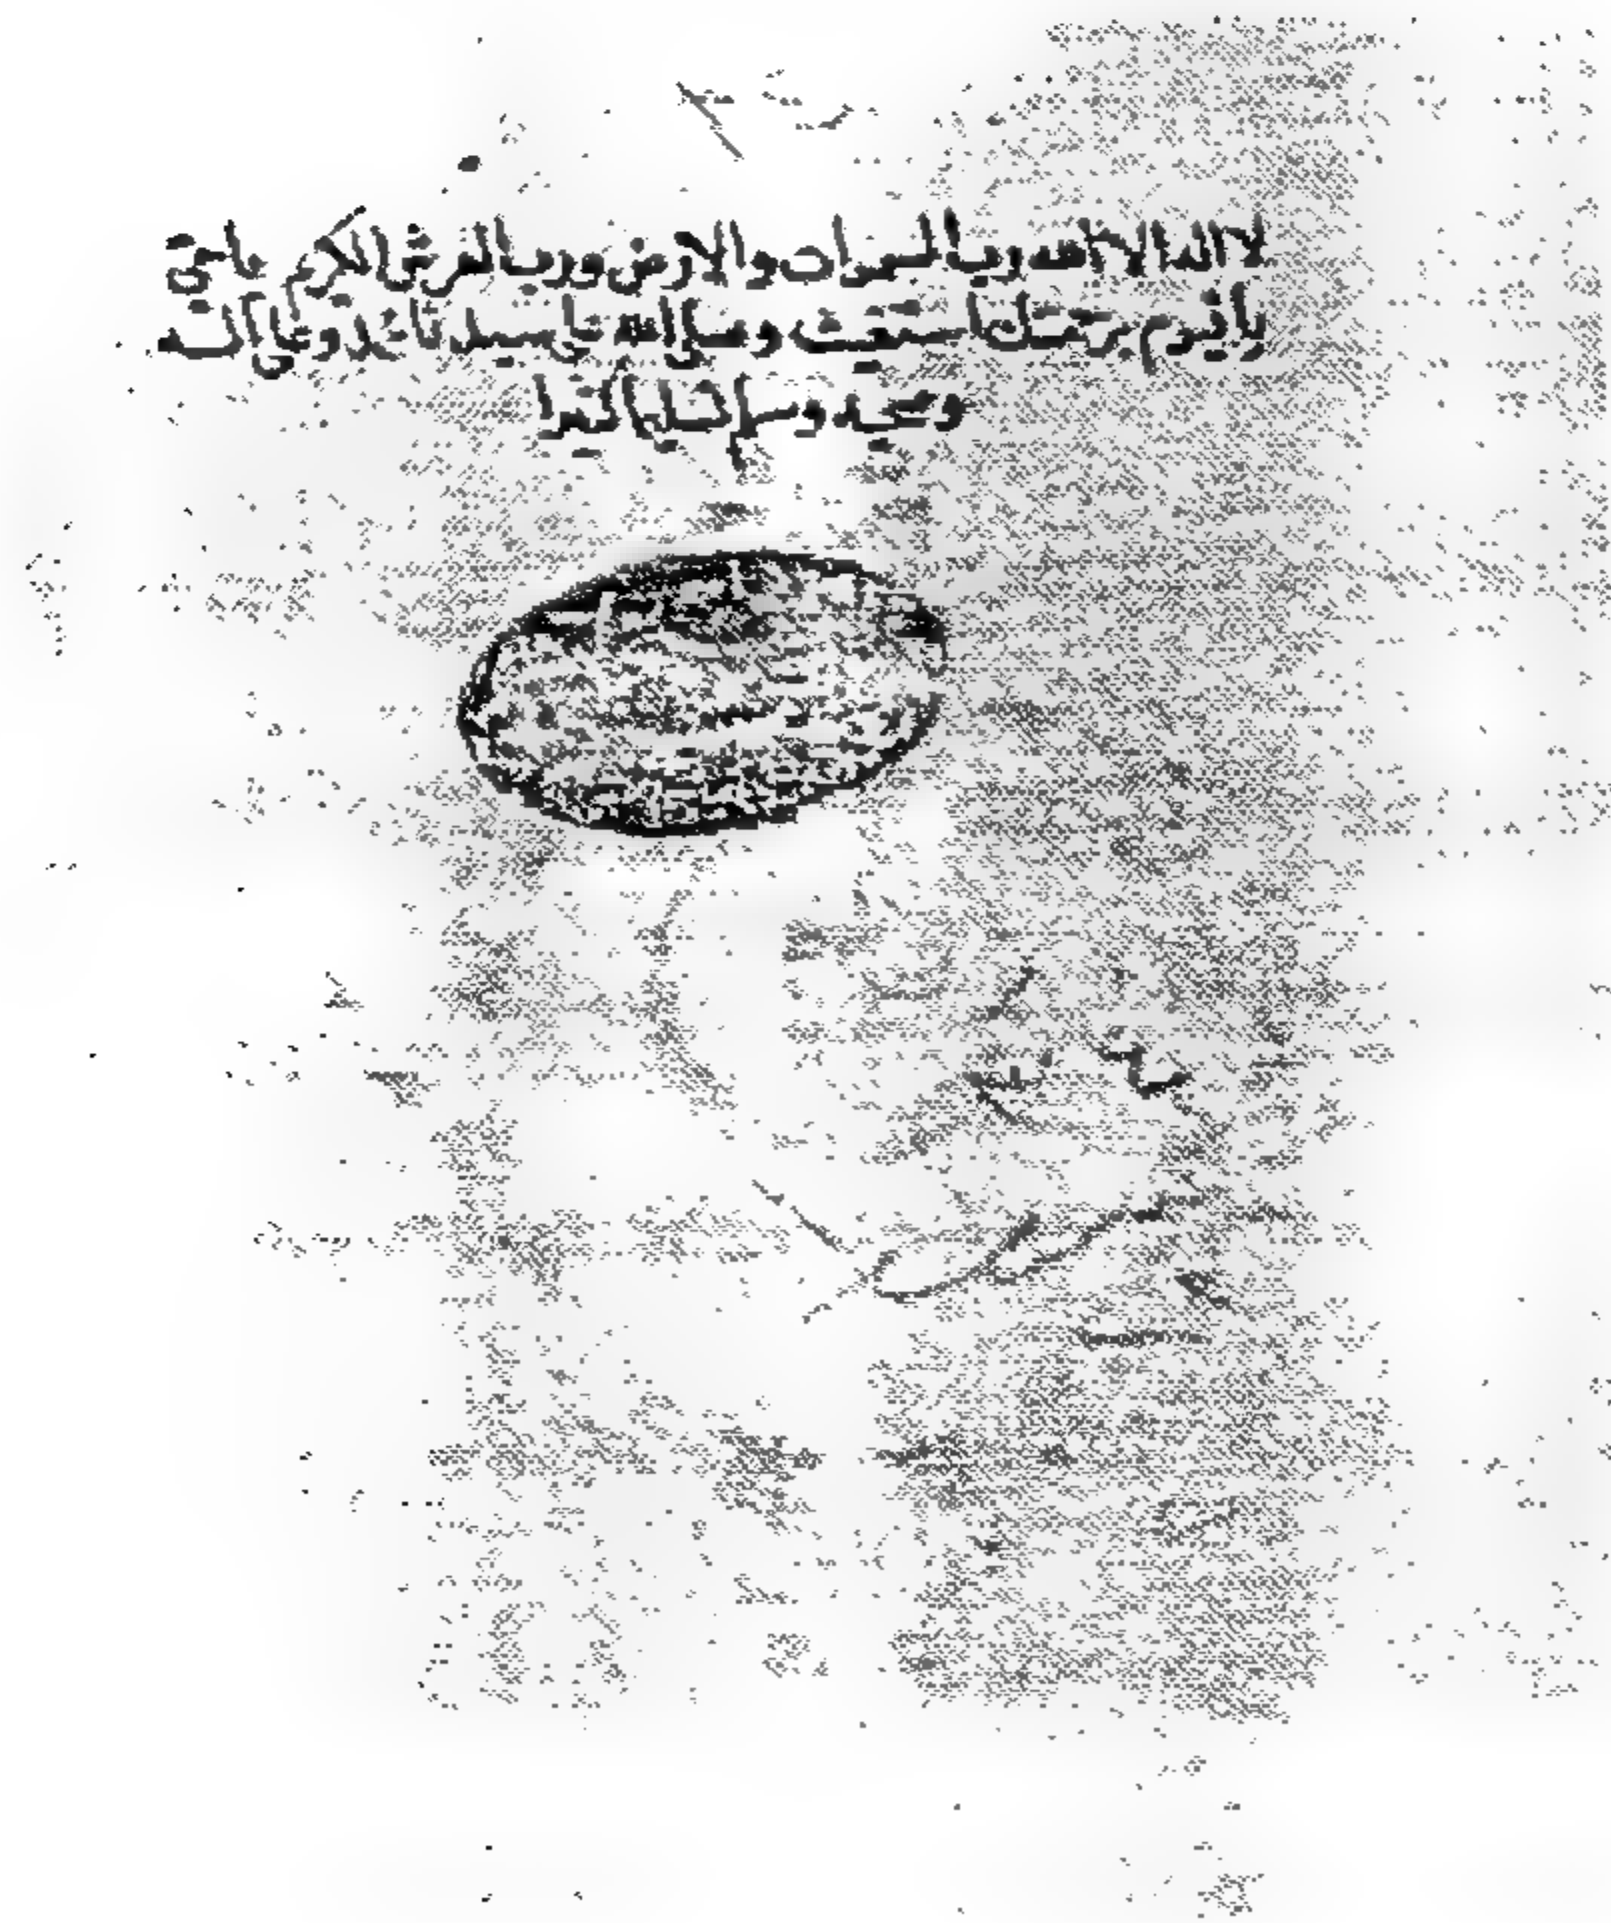 لا اله الا الله رب السموات والارض ورب العرش الكريم ياحي
يا قيوم برحمتك استغيث وصلى الله على سيدنا محمد وعلى اله
وصحبه وسلم تسليما كثيرا